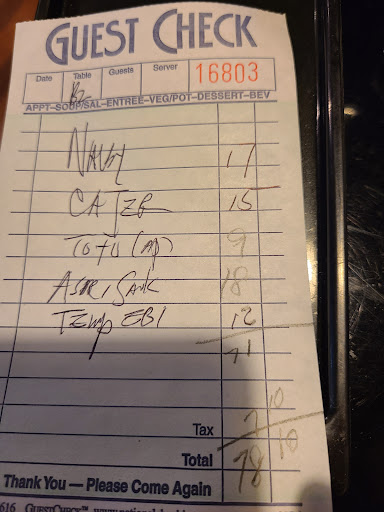 GUEST CHECK
Date Table Guests Server 16803
APPT-SOUP/SAL-ENTREE-VEG/POT-DESSERT-BEV
17
15
TOFU 9
18
TEMP EBI 12
71
Tax 7 10
Total 78 10
Thank You — Please Come Again
616 GUESTCHECK™